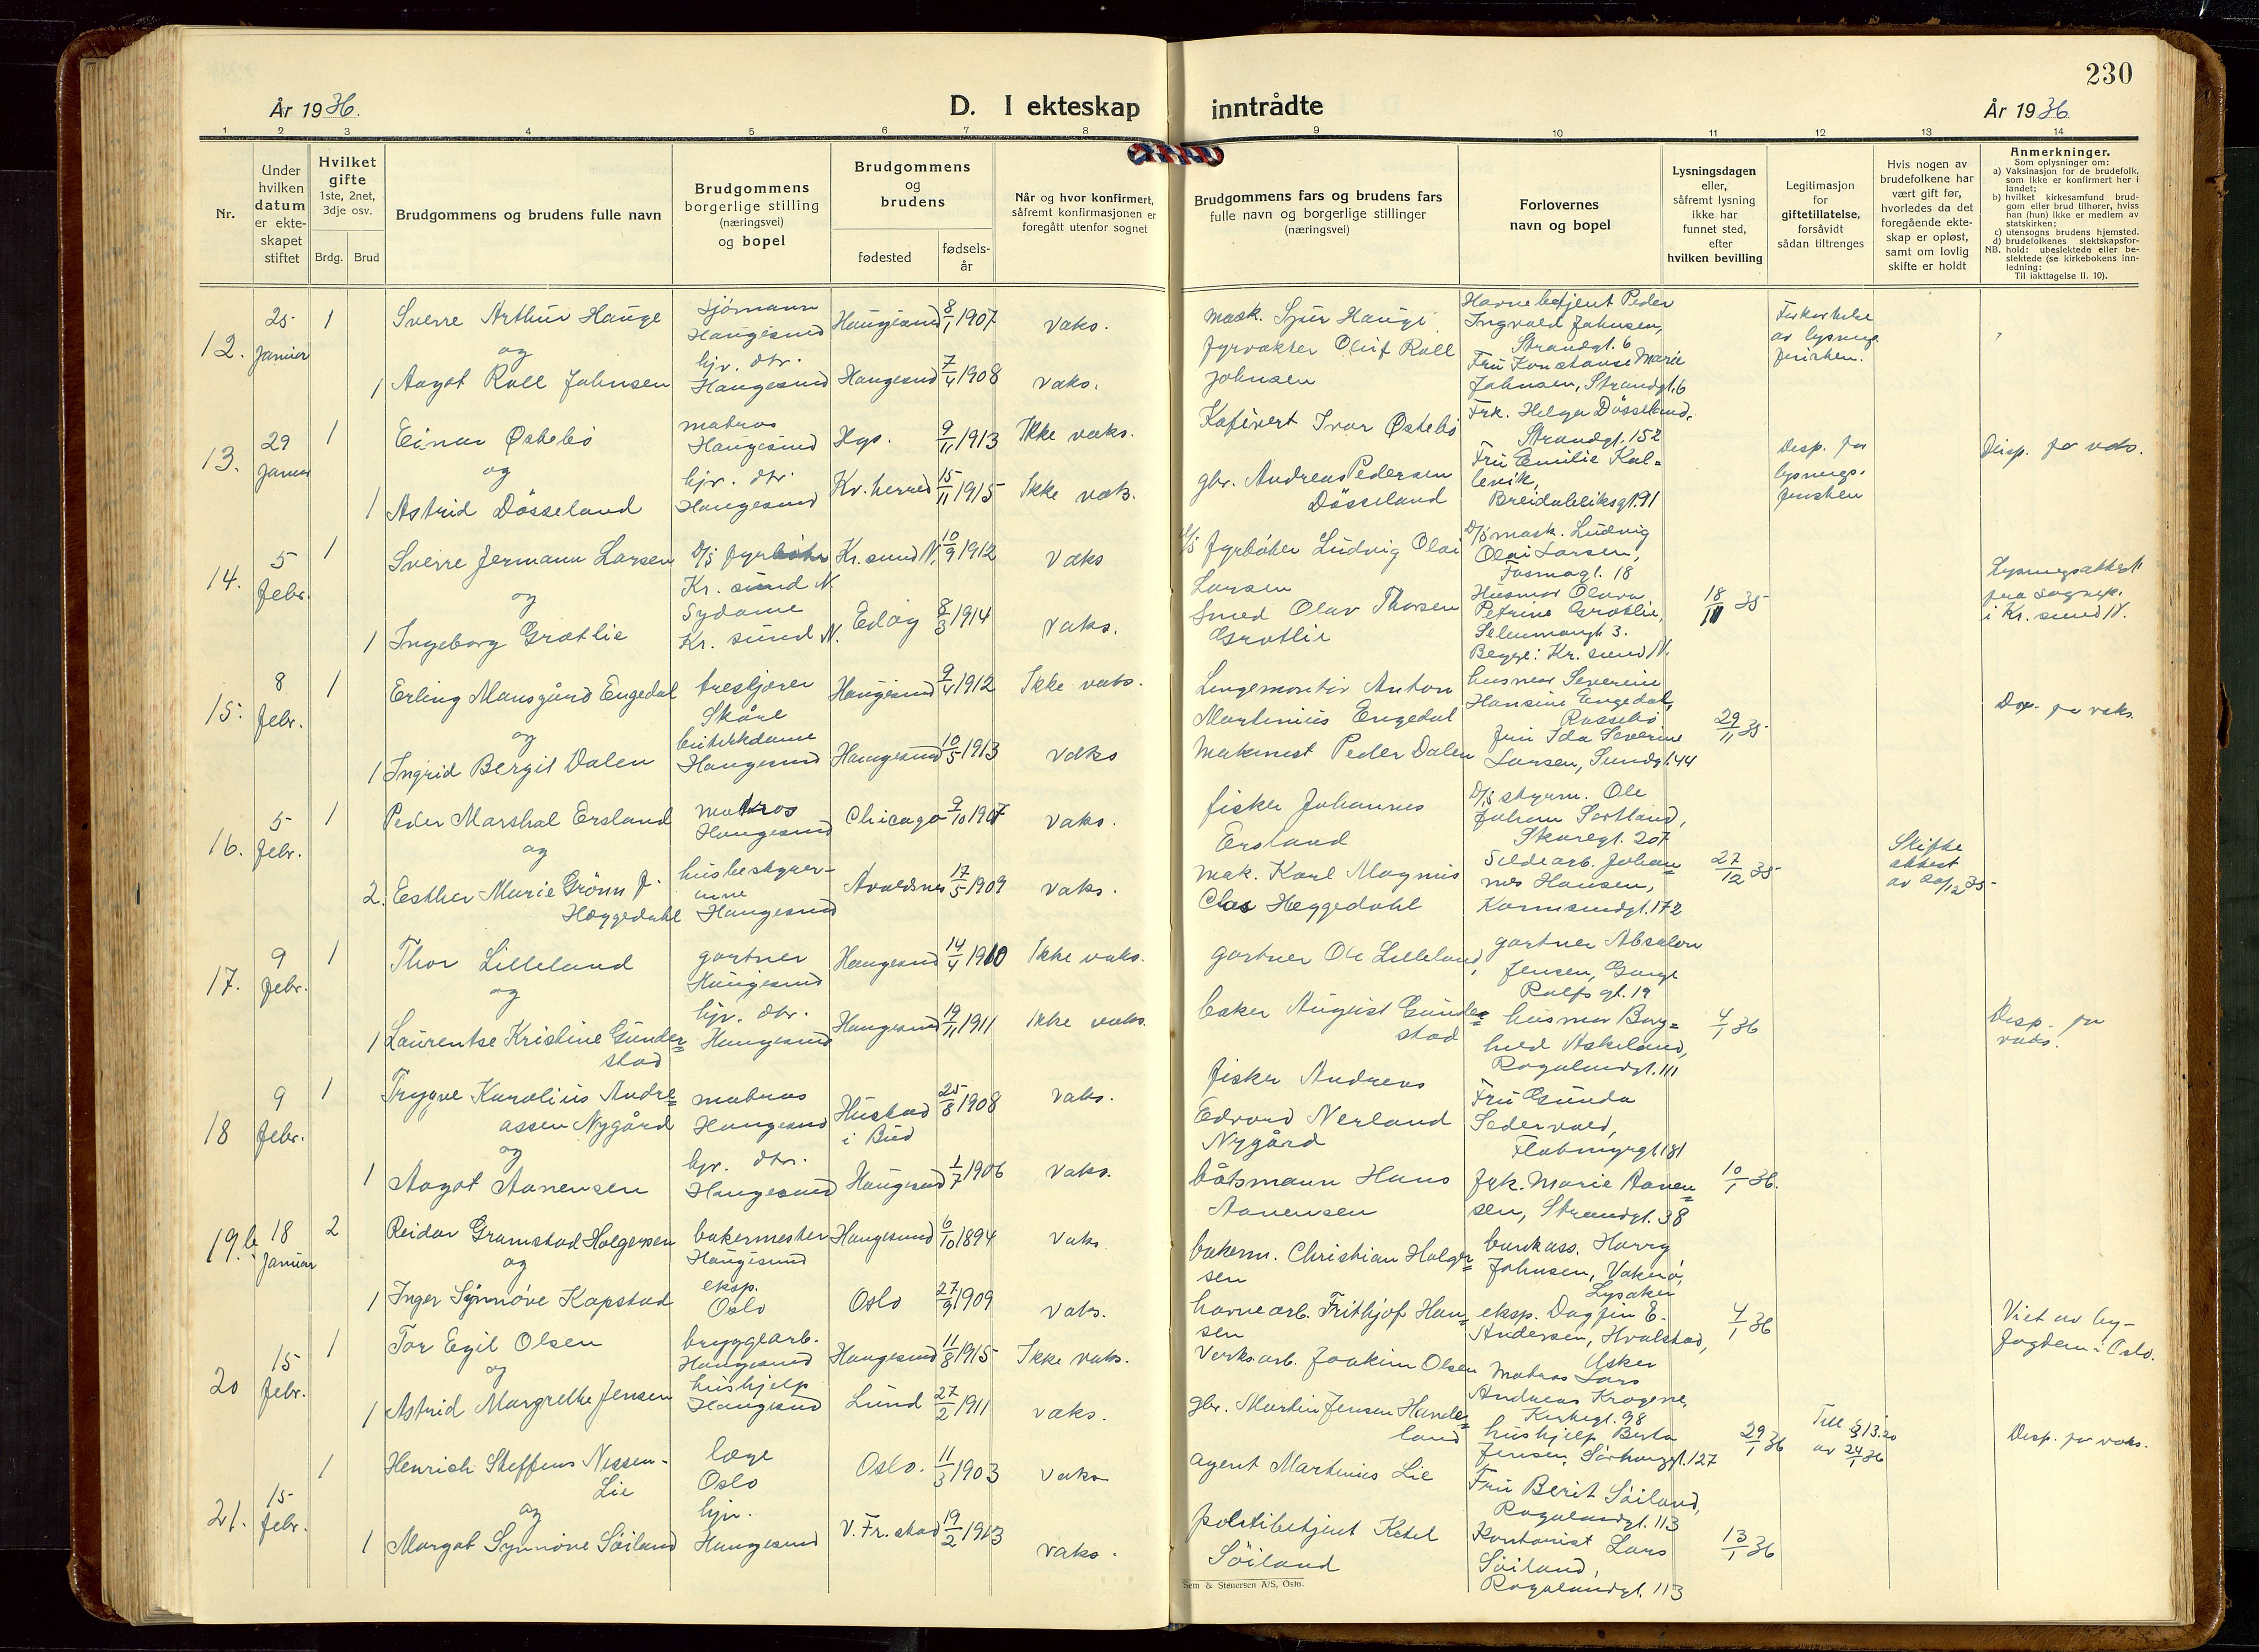 230
År 1936.
D. I ekteskap inntrådte
År 1936.
1 2 3 4 5 6 7 8 9 10 11 12 13 14
Nr.
Under hvilken datum er ekteskapet stiftet
Hvilket gifte 1ste, 2net, 3dje osv.
Brdg. Brud
Brudgommens og brudens fulle navn
Brudgommens borgerlige stilling (næringsvei) og bopel
Brudgommens og brudens
fødested
fødsels-år
Når og hvor konfirmert, såfremt konfirmasjonen er foregått utenfor sognet
Brudgommens fars og brudens fars fulle navn og borgerlige stillinger (næringsvei)
Forlovernes navn og bopel
Lysningsdagen eller, såfremt lysning ikke har funnet sted, efter hvilken bevilling
Legitimasjon for giftetillatelse, forsåvidt sådan tiltrenges
Hvis nogen av brudefolkene har vært gift før, hvorledes da det foregående ekteskap er opløst, samt om lovlig skifte er holdt
Anmerkninger.
Som oplysninger om:
a) Vaksinasjon for de brudefolk, som ikke er konfirmert her i landet;
b) hvilket kirkesamfund brudgom eller brud tilhører, hviss han (hun) ikke er medlem av statskirken;
c) utensogns brudens hjemsted.
d) brudefolkenes slektskapsforhold: ubeslektede eller beslektede (se kirkebokens innledning:
NB.
Til iakttagelse II. 10).
12. 25 Januar 1 Sverre Arthur Hauge sjømann Haugesund Haugesund 8/1 1907 vaks. mask. Sjur Hauge Havnebetjent Peder Ingvald Johnsen, Strandgt. 6 Forkortelse av lysningsfristen.
og
1 Aagot Roll Johnsen hjv. dtr. Haugesund Haugesund 7/4 1908 vaks. fyrvokter Oluf Roll Johnsen Fru Konstanse Marie Johnsen, Strandgt. 6
13. 29 Januar 1 Einar Østebö matros Haugesund Hgs. 9/11 1913 Ikke vaks. Kafévert Ivar Østebö Frk. Helga Dösseland, Strandgt. 152 Desp. for lysningsfristen Disp. for vaks.
og
1 Astrid Dösseland hjv. dtr. Haugesund Kv. herred 15/11 1915 Ikke vaks. gbr. Andreas Pedersen Dösseland Fru Emilie Kallevik, Breidablikgt. 91
14. 5 Febr. 1 Sverre Jermann Larsen D/S fyrböter Kr. sund N. Kr. sund N. 10/9 1912 vaks D/S fyrböter Ludvig Olai Larsen D/S mask. Ludvig Olai Larsen, Fosnagt. 18 18/11 35 Lysningsattest fra sognep. i Kr. sund N.
og
1 Ingeborg Grøtlie Sydame Kr. sund N. Edöy 8/3 1914 vaks. Smed Olav Thorsen Grøtlie Husmor Olava Petrine Grøtlie, 3. Begge: Kr. sund N.
15. 8 Febr. 1 Erling Mansgård Engedal treskjærer Skåre Haugesund 9/4 1912 Ikke vaks. Anton Martinius Engedal husmor Severine Hansine Engedal, Rossebö 29/11 35 Disp. for vaks.
og
1 Ingrid Bergit Dalen butikkdame Haugesund Haugesund 10/5 1913 vaks Maskinist Peder Dalen Fru Ida Severine Larsen, Sundgt. 44
16. 5 Febr. 1 Peder Marshal Ersland matros Haugesund Chicago 9/10 1907 vaks. fisker Johannes Ersland D/S styrm. Ole Johan Sortland, Skåregt. 207
og
2. Esther Marie Grönn f. Heggedahl husbestyrerinne Haugesund Avaldsnes 17/5 1909 vaks. mak. Karl Magnus Clas Heggedahl Sildearb. Johannes Hansen, Karmsundgt. 172 27/12 35 Skifteattest av 20/12 35
17. 9 Febr. 1 Thor Lilleland gartner Haugesund Haugesund 14/4 1910 Ikke vaks. gartner Ole Lilleland, gartner Absalon Jensen, Gange Rolfs gt. 19
og
1 Laurentse Kristine Gunderstad hjv. dtr. Haugesund Haugesund 19/11 1911 Ikke vaks. baker August Gunderstad husmor Borghild Askeland, Rogalandgt. 111 4/1 36 Desp. for vaks.
18 9 Febr. 1 Trygve Karolius Andreassen Nygård matros Haugesund Hustad i Bud 25/8 1908 vaks. fisker Andreas Edvard Nerland Nygård Fru Gunda Sedervald, Flotmyrgt. 181
og
1 Aagot Aanensen hjv. dtr. Haugesund Haugesund 1/7 1906 vaks. båtsmann Hans Aanensen frk. Marie Aanensen, Strandgt. 38 10/1 36.
19.b 18 Januar 2 Reidar Gramstad Holgersen bakermester Haugesund Haugesund 6/10 1894 vaks. bakerm. Christian Holgersen bankass. Harry Johnsen, Vakerö, Lysaker
og
1 Inger Synnöve Kapstad eksp. Oslo Oslo 27/9 1909 vaks. havnearb. Frithjof Hansen eksp. Dagfin E. Andersen, Hvalstad, Asker 4/1 36 Viet av byfogden i Oslo.
20 15 Febr. 1 Tor Egil Olsen bryggearb. Haugesund Haugesund 11/8 1915 Ikke vaks. Verksarb. Joakim Olsen Matros Lars Andreas Krogenes, Kirkegt. 98
og
1 Astrid Margrethe Jensen hushjelp Haugesund Lund 27/2 1911 vaks. gbr. Martin Jensen Handeland hushjelp Berta Jensen, Sörhauggt. 127 29/1 36 Till § 13.20 av 24/1 36 Desp. for vaks.
21. 15 Febr. 1 Henrich Steffens Nissen-Lie læge Oslo Oslo. 11/3 1903 vaks agent Martinius Lie Fru Berit Söiland, Rogalandgt. 113
og
1 Margot Synnöve Söiland hjv. Haugesund V. Fr. stad 19/2 1913 vaks. politibetjent Ketel Söiland Kontorist Lars Söiland, Rogalandgt. 113 13/1 36
Sem & Stenersen A/S, Oslo.